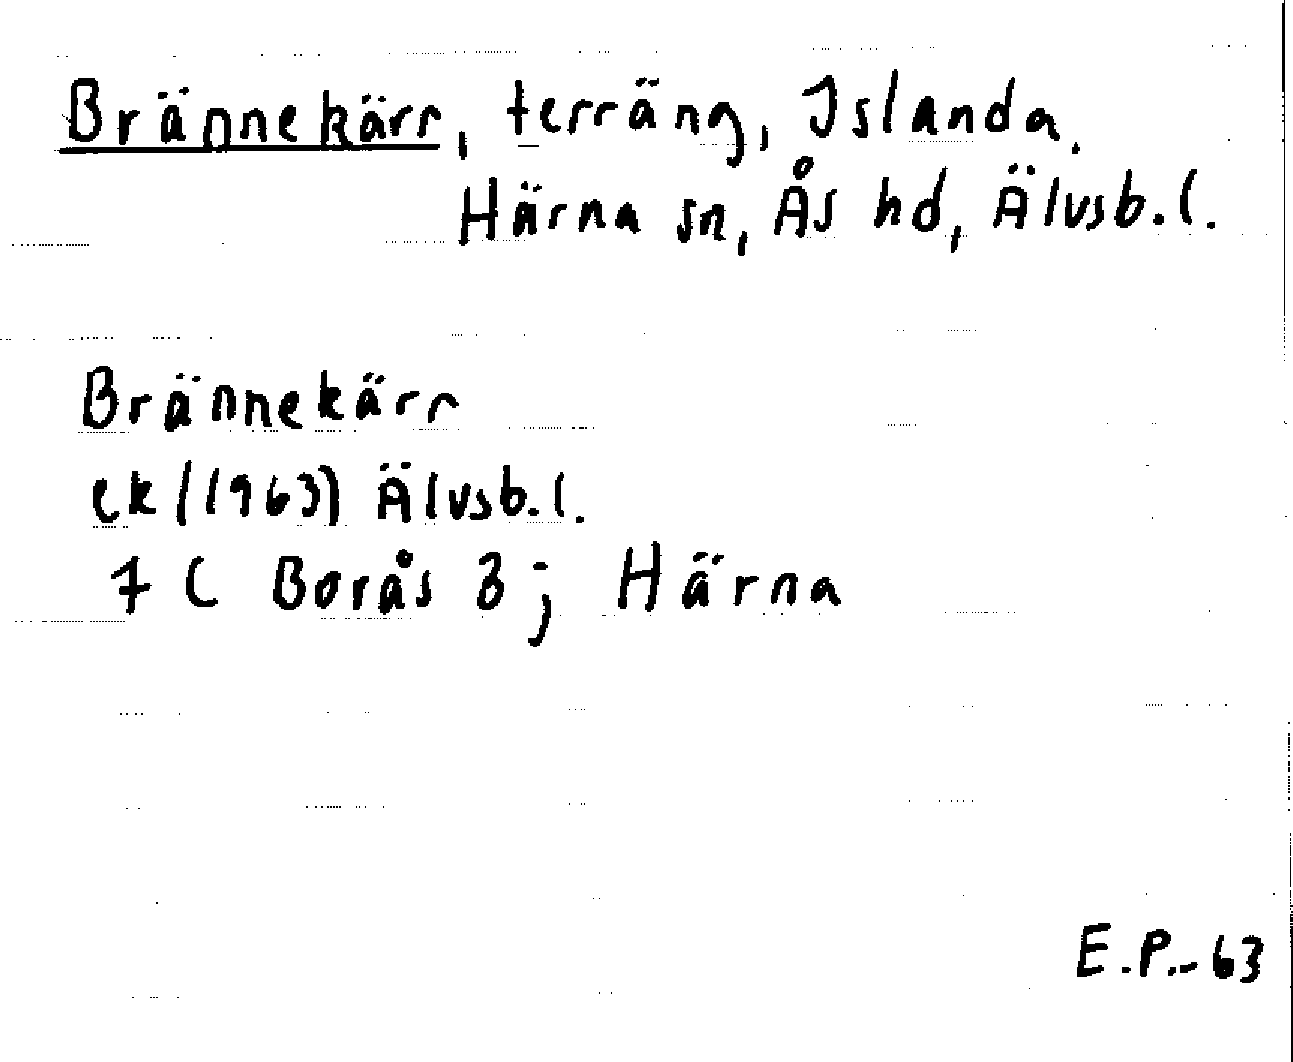 Brännekärr, terräng, Islanda,
Härna sn, Ås hd, Älvsb.l.
Brännekärr
ek (1963) Älvsb.l.
7 C Borås 3; Härna
E.P.-63